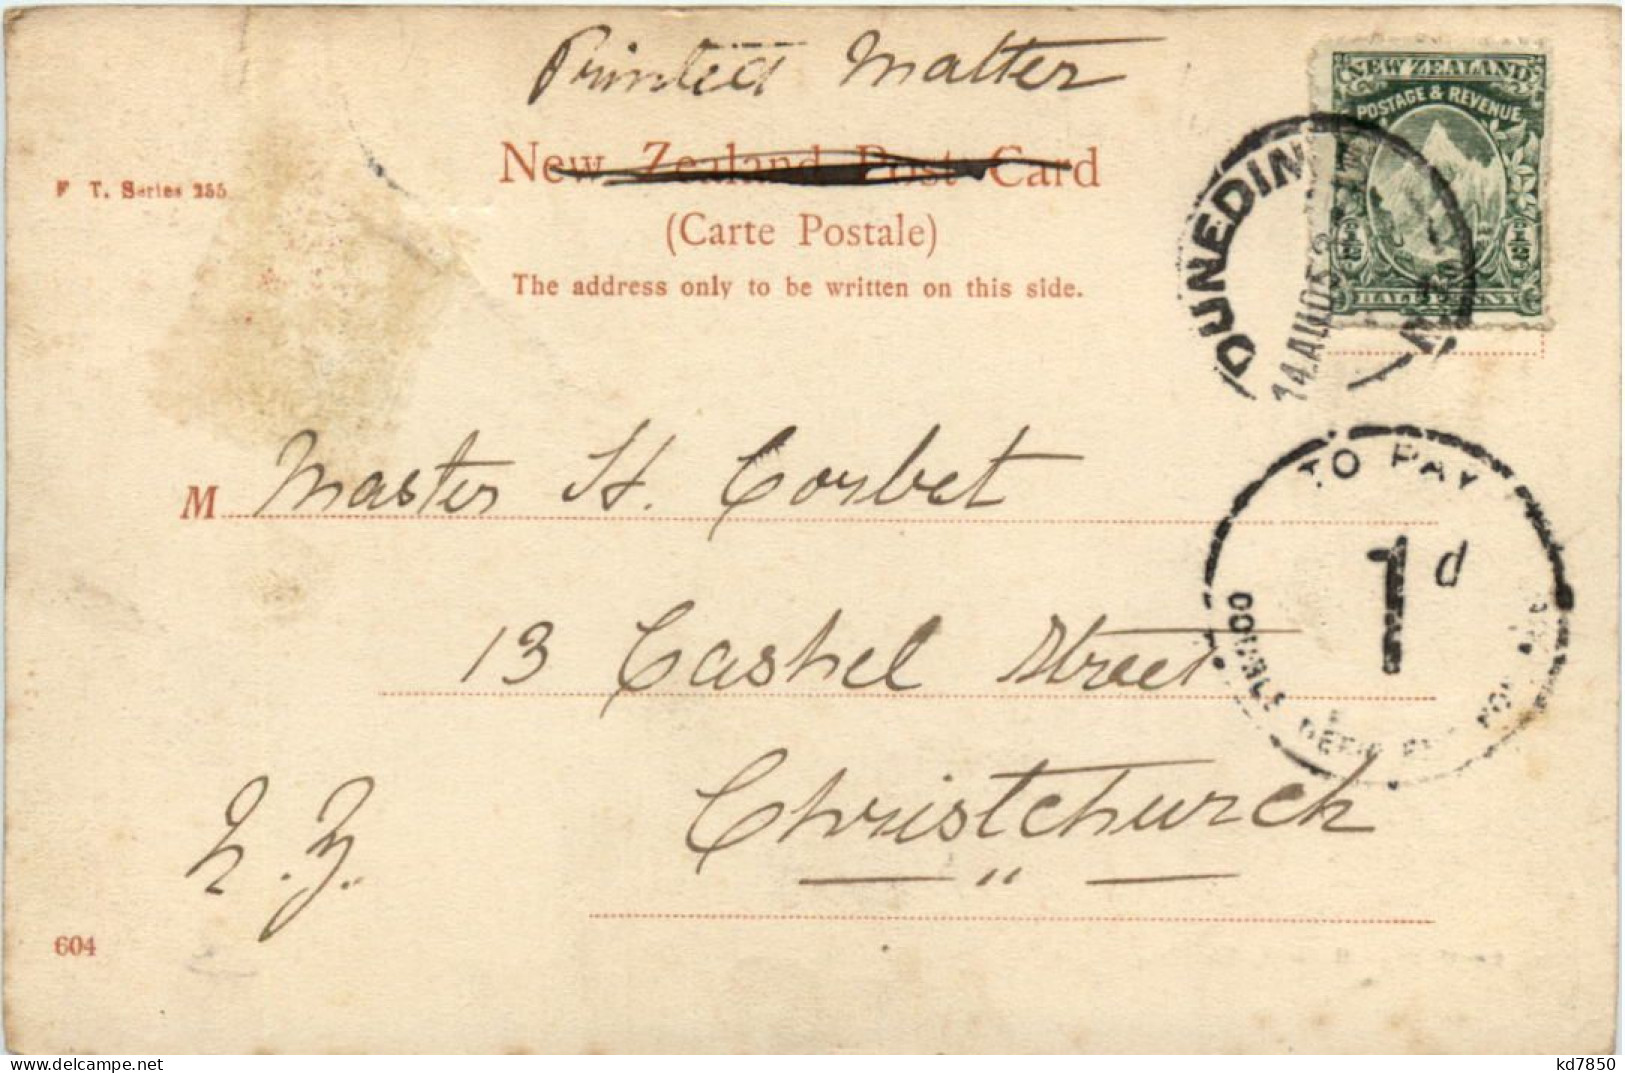 Printed Matter
New Zealand Post Card
(Carte Postale)
The address only to be written on this side.
F. T. Series 255
NEW ZEALAND
POSTAGE & REVENUE
HALF PENNY
DUNEDIN
14.AU
M Master H. Corbet
13 Cashel Street
Christchurch
N.Z.
TO PAY
1d
DOUBLE DEFICIENCY
604
kd7850